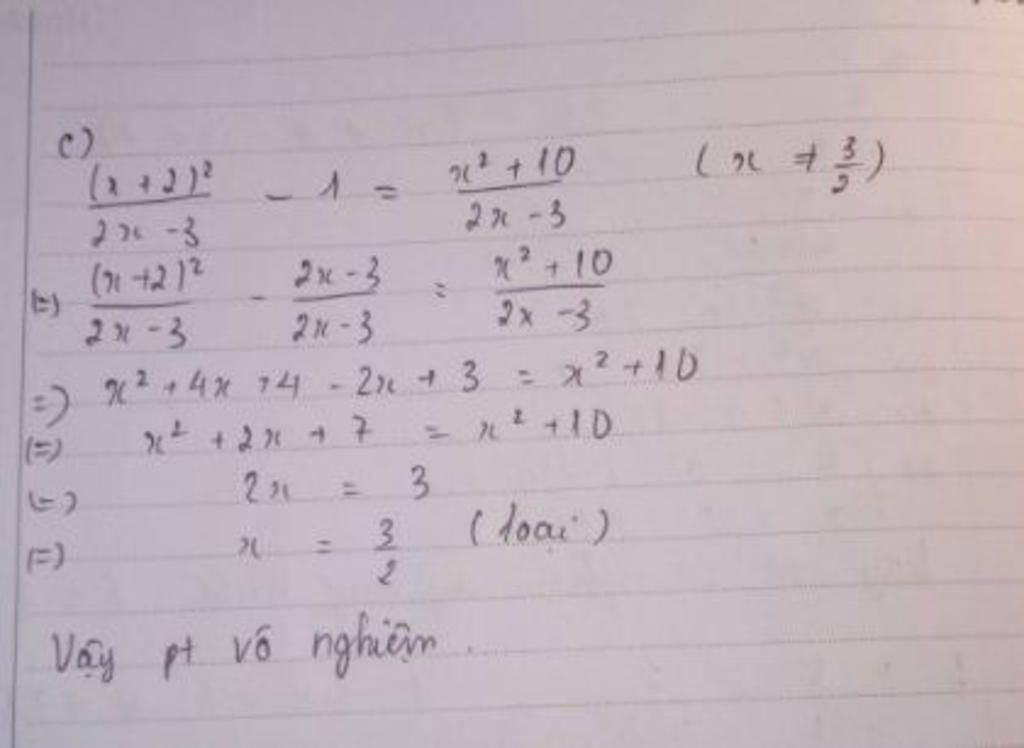 c)
(x + 2)² / (2x - 3) - 1 = (x² + 10) / (2x - 3) (x ≠ 3/2)
(=) (x + 2)² / (2x - 3) - (2x - 3) / (2x - 3) = (x² + 10) / (2x - 3)
=) x² + 4x + 4 - 2x + 3 = x² + 10
(=) x² + 2x + 7 = x² + 10
(=) 2x = 3
(=) x = 3/2 (loại)
Vậy pt vô nghiệm.